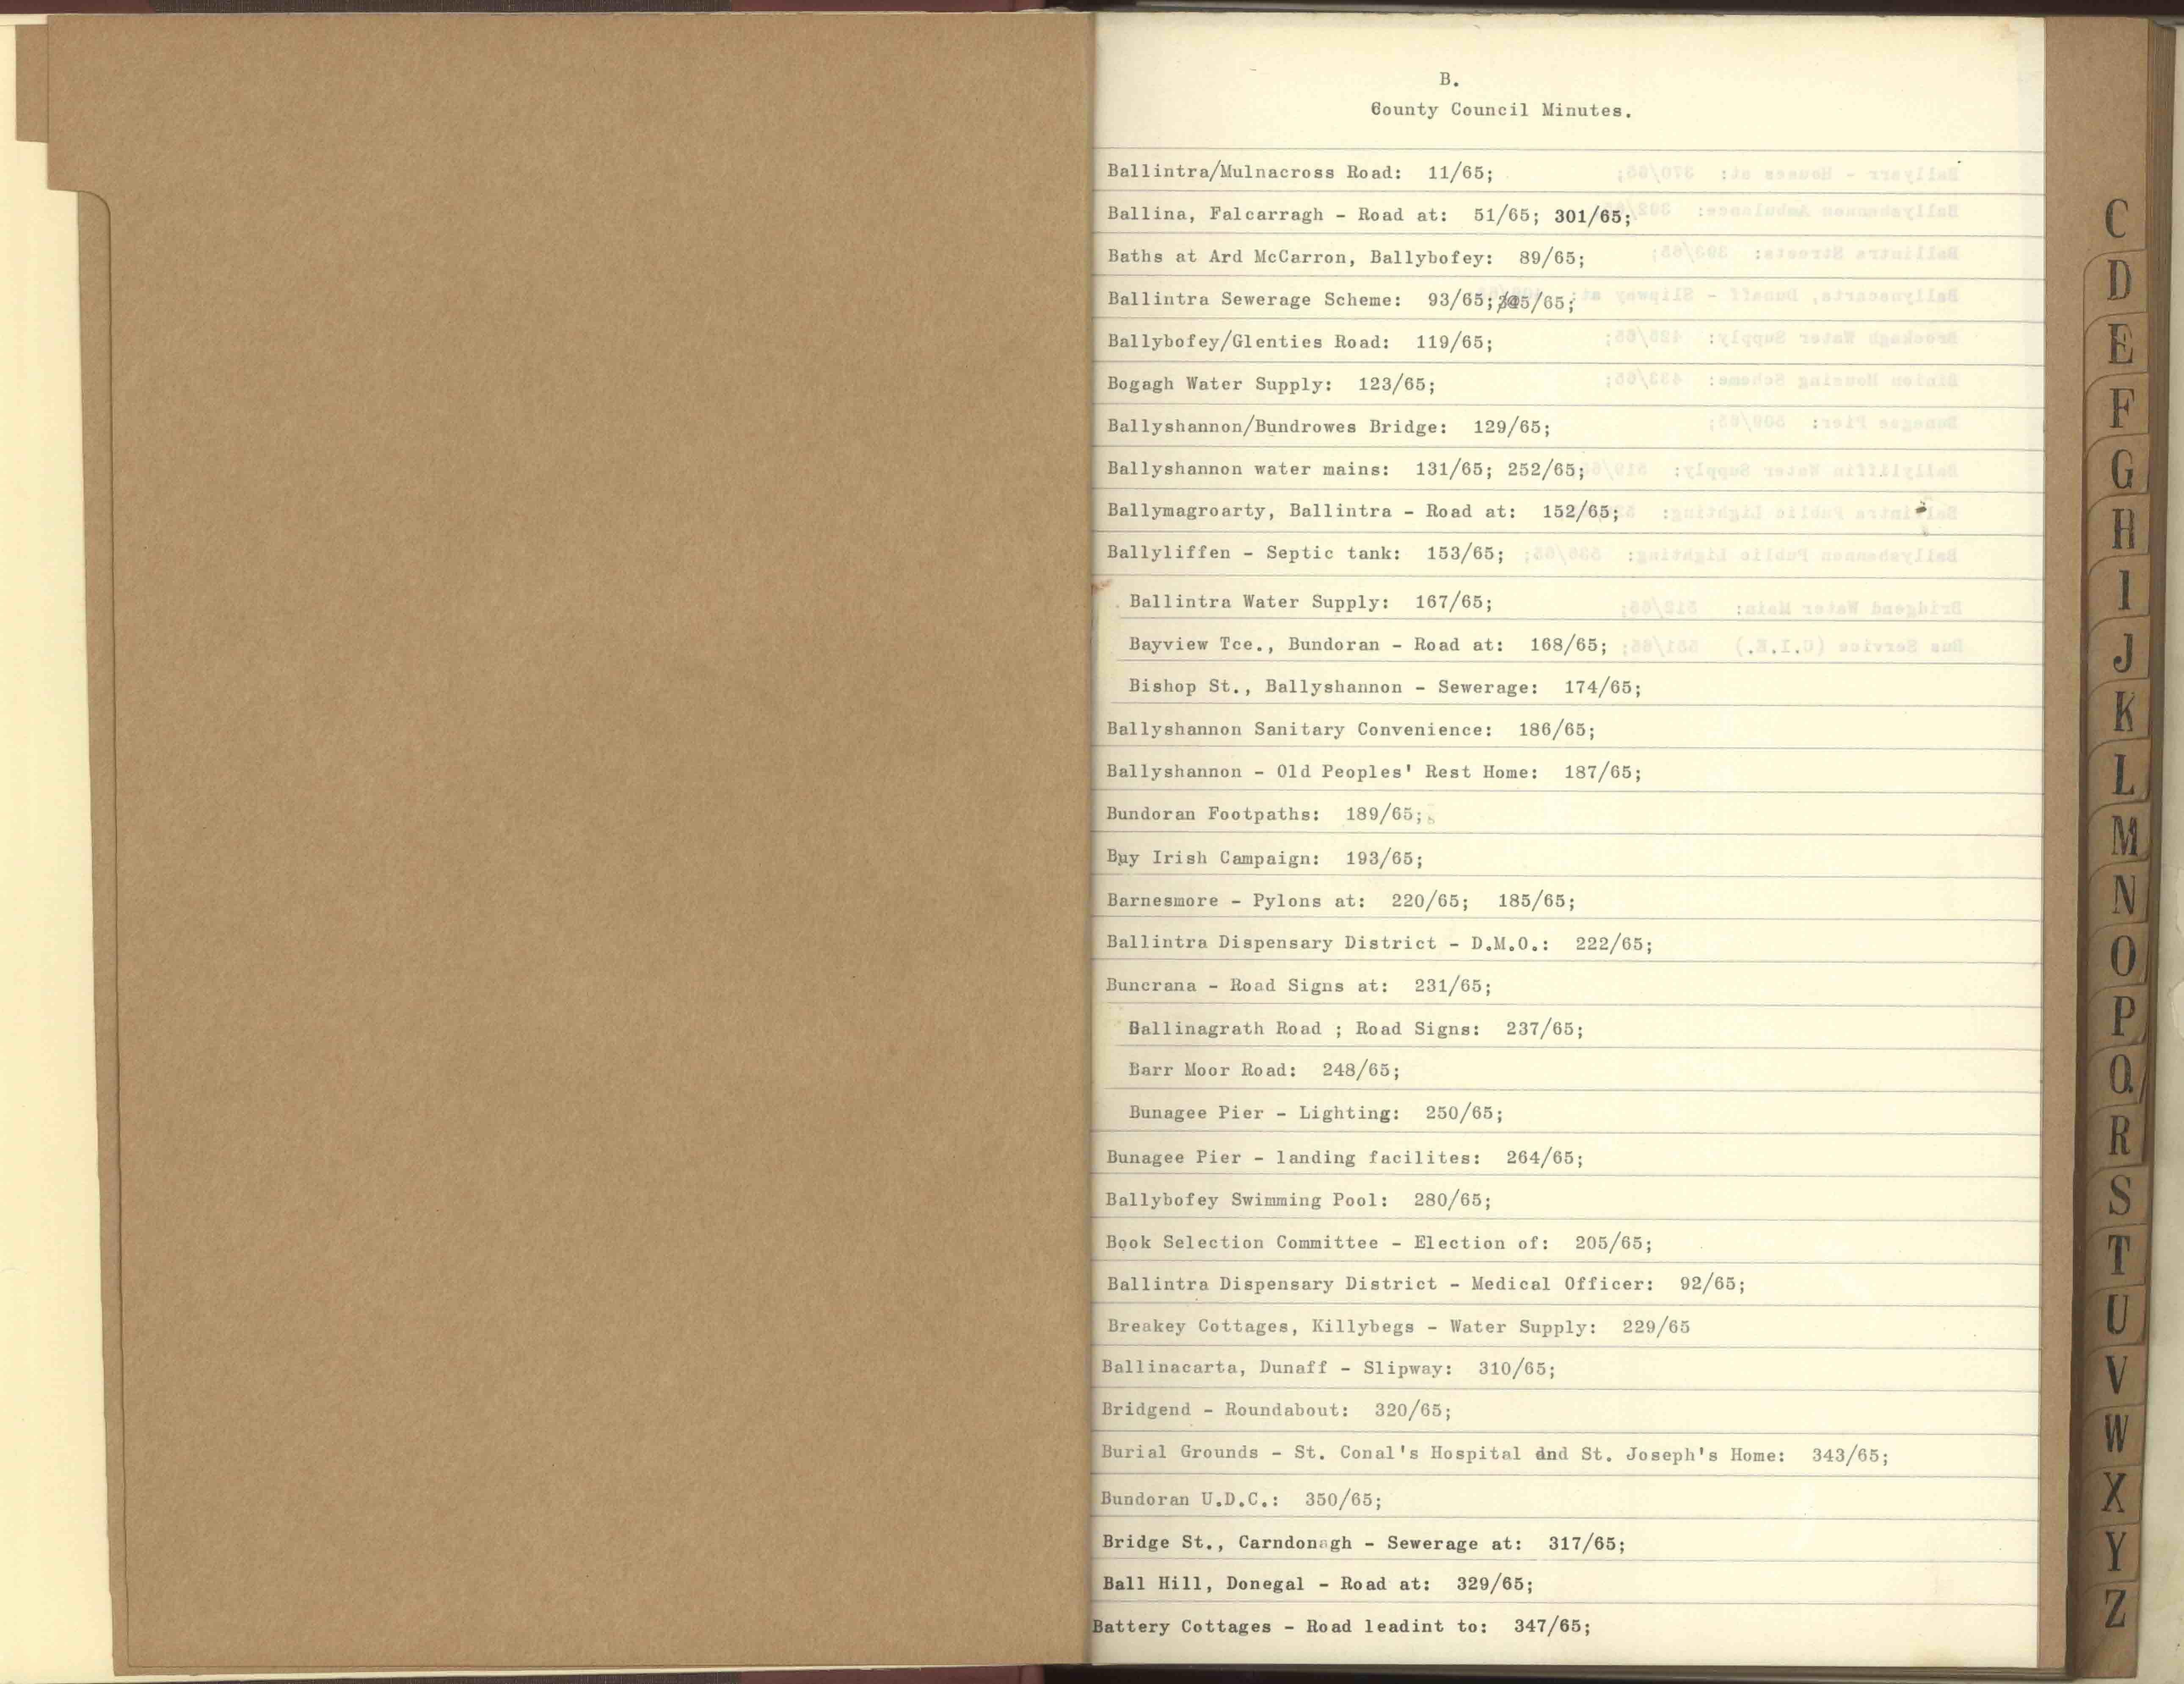 B.
County Council Minutes.
Ballintra/Mulnacross Road: 11/65;
Ballina, Falcarragh - Road at: 51/65; 301/65;
Baths at Ard McCarron, Ballybofey: 89/65;
Ballintra Sewerage Scheme: 93/65;
Ballybofey/Glenties Road: 119/65;
Bogagh Water Supply: 123/65;
Ballyshannon/Bundrowes Bridge: 129/65;
Ballyshannon water mains: 131/65; 252/65;
Ballymagroarty, Ballintra - Road at: 152/65;
Ballyliffen - Septic tank: 153/65;
Ballintra Water Supply: 167/65;
Bayview Tce., Bundoran - Road at: 168/65;
Bishop St., Ballyshannon - Sewerage: 174/65;
Ballyshannon Sanitary Convenience: 186/65;
Ballyshannon - Old Peoples' Rest Home: 187/65;
Bundoran Footpaths: 189/65;
Buy Irish Campaign: 193/65;
Barnesmore - Pylons at: 220/65; 185/65;
Ballintra Dispensary District - D.M.O.: 222/65;
Buncrana - Road Signs at: 231/65;
Ballinagrath Road ; Road Signs: 237/65;
Barr Moor Road: 248/65;
Bunagee Pier - Lighting: 250/65;
Bunagee Pier - landing facilites: 264/65;
Ballybofey Swimming Pool: 280/65;
Book Selection Committee - Election of: 205/65;
Ballintra Dispensary District - Medical Officer: 92/65;
Breakey Cottages, Killybegs - Water Supply: 229/65
Ballinacarta, Dunaff - Slipway: 310/65;
Bridgend - Roundabout: 320/65;
Burial Grounds - St. Conal's Hospital and St. Joseph's Home: 343/65;
Bundoran U.D.C.: 350/65;
Bridge St., Carndonagh - Sewerage at: 317/65;
Ball Hill, Donegal - Road at: 329/65;
Battery Cottages - Road leadint to: 347/65;
C
D
E
F
G
H
I
J
K
L
M
N
O
P
Q
R
S
T
U
V
W
X
Y
Z